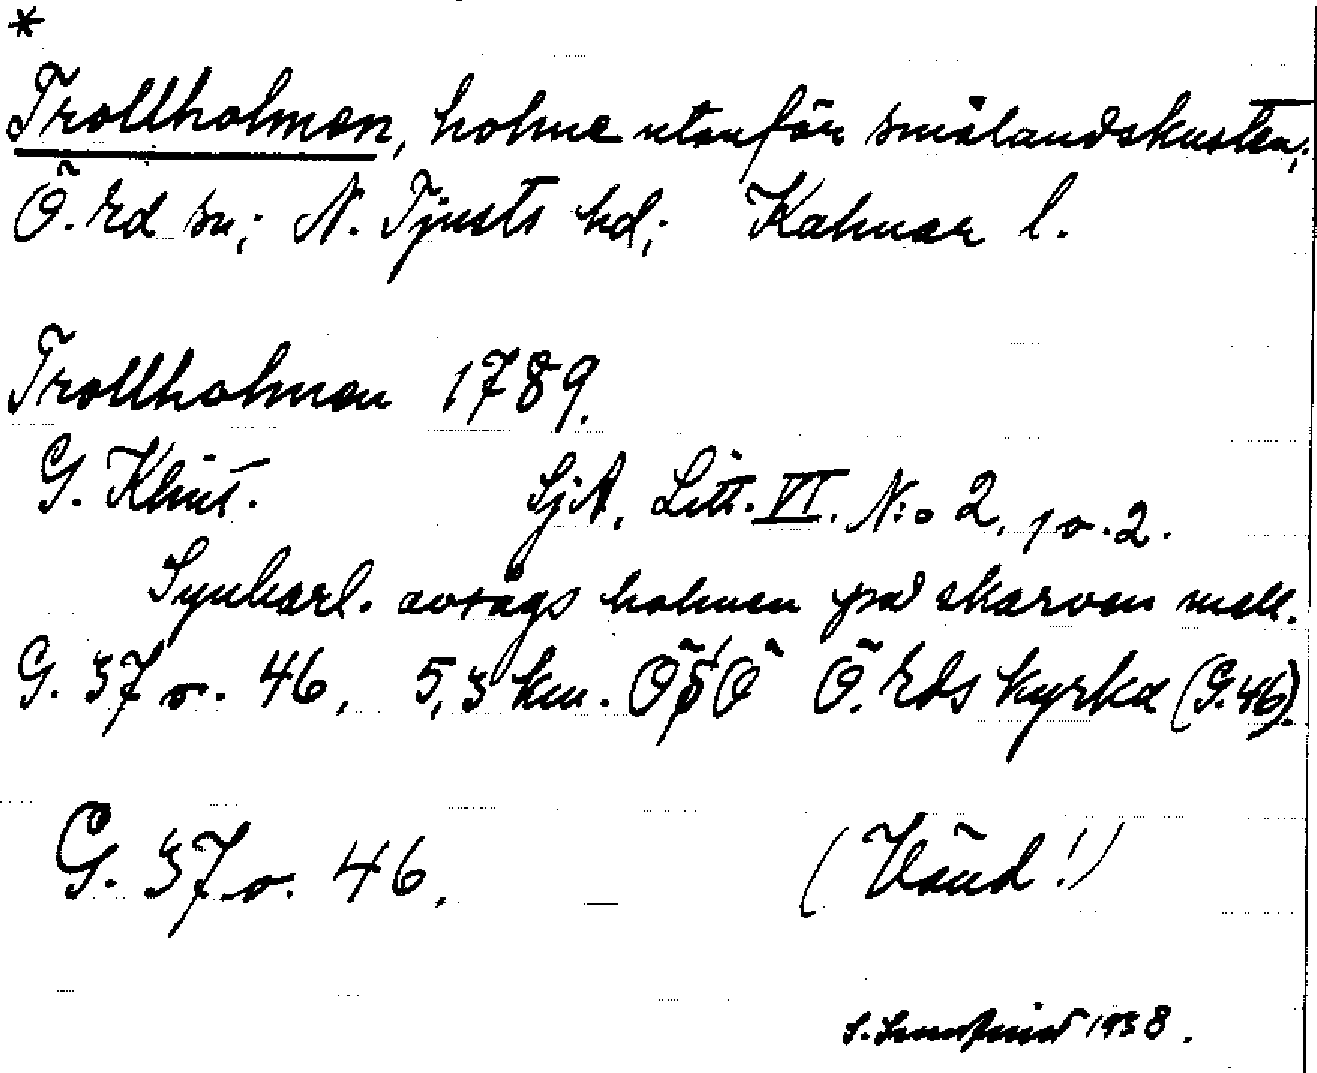 *
Trollholmen, holme utanför smålandskusten;
Ö. Ed sn; N. Tjusts hd; Kalmar l.
Trollholmen 1789.
G. Klint. SjA, Litt. VI. N:o 2, 1 o. 2.
Synbarl. avsågs holmen på skarven mell.
G. 37 o. 46, 5,3 km. ÖSÖ Ö. Eds kyrka (G. 46).
G. 37 o. 46. (Vänd!)
1938.